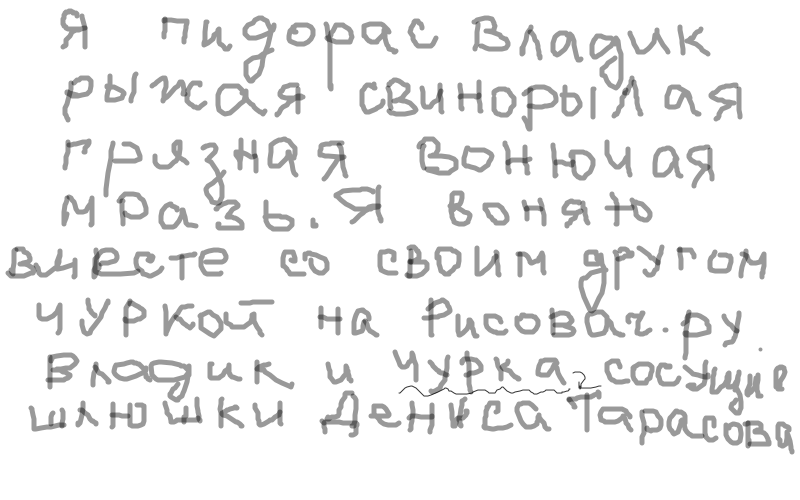 Я пидорас Владик
рыжая свинорылая
грязная вонючая
мразь. Я воняю
вместе со своим другом
чуркой на Рисовач.ру
Владик и чурка, сосущие
шлюшки Дениса Тарасова